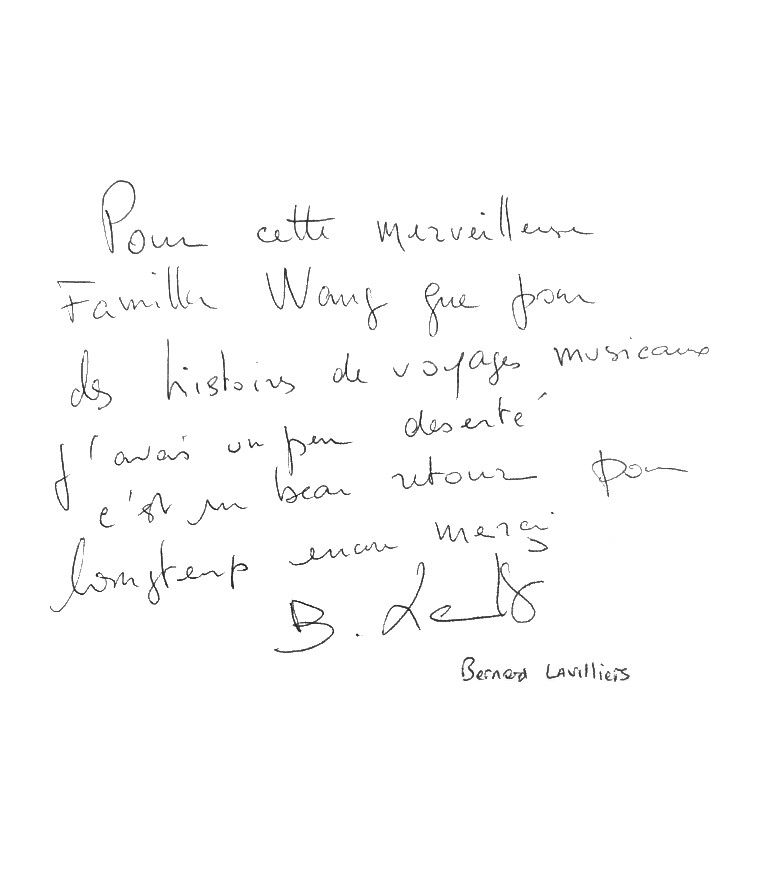 Pour cette merveilleuse
Famille Wang que pour
des histoires de voyages musicaux
j'avais un peu deserté
c'est un beau retour pour
longtemp encore merci
B.
Bernard LAvilliers